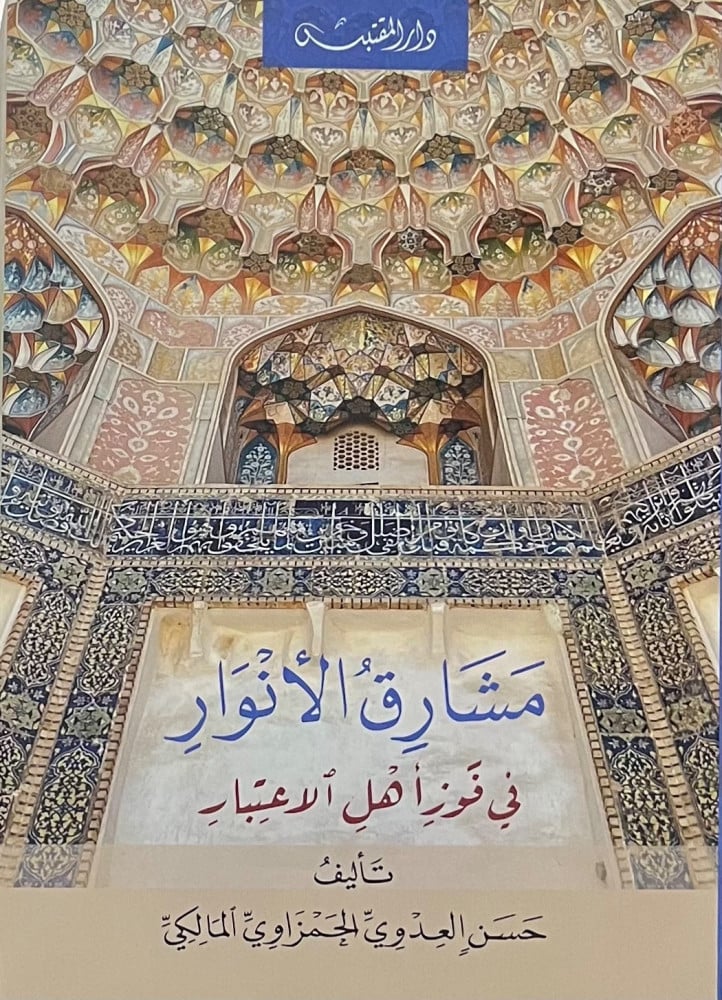 دار المقتبس
مَشَارِقُ الأنْوَارِ
في فَوْزِ أَهْلِ الاعتِبَارِ
تَأليفُ
حَسَن العِدْوِيِّ الحَمْزَاوِيِّ المَالِكِيِّ